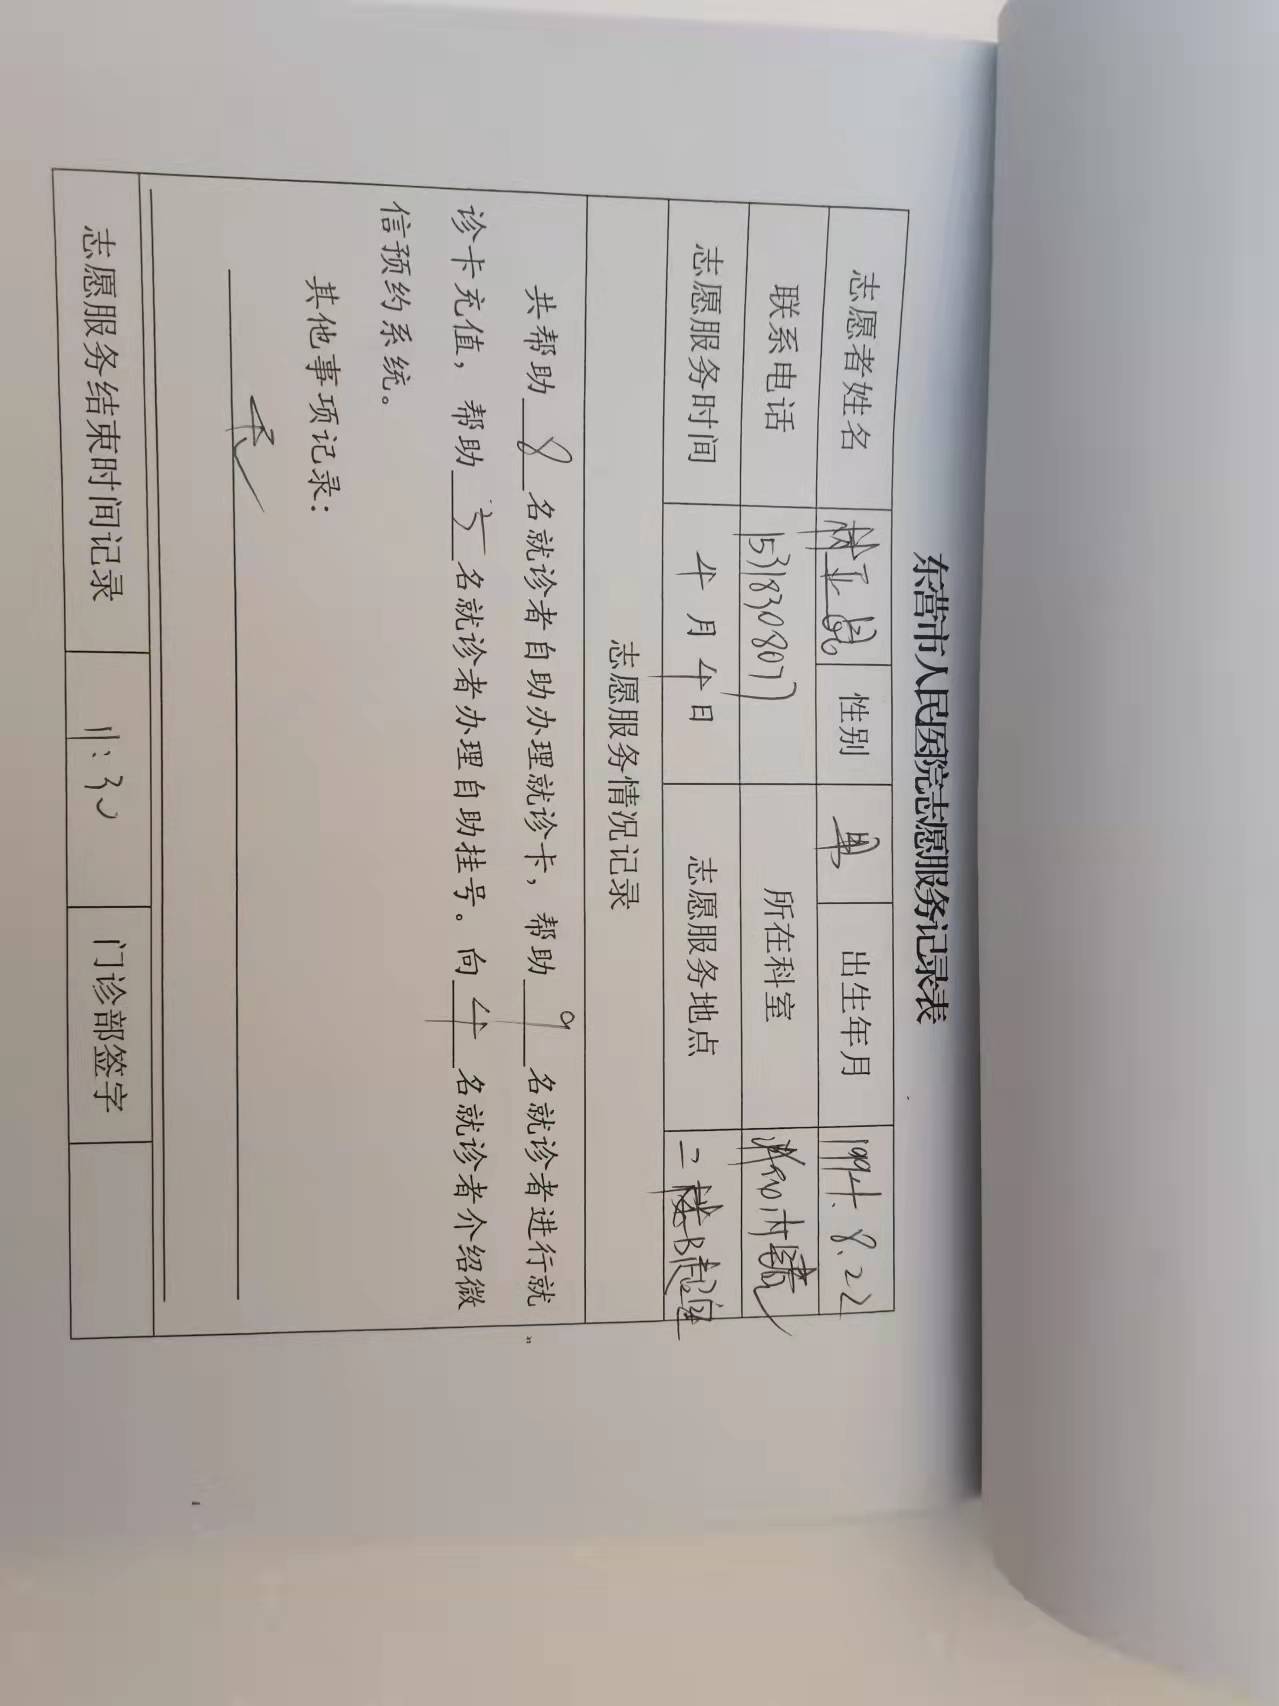 东营市人民医院志愿服务记录表
志愿者姓名 林亚 性别 男 出生年月 1994.8.22
联系电话 15318308077 所在科室 内
志愿服务时间 4月4日 志愿服务地点 二楼B超室
志愿服务情况记录
共帮助 8 名就诊者自助办理就诊卡，帮助 9 名就诊者进行就
诊卡充值，帮助 5 名就诊者办理自助挂号。向 4 名就诊者介绍微
信预约系统。
其他事项记录：
无
志愿服务结束时间记录 11:30 门诊部签字